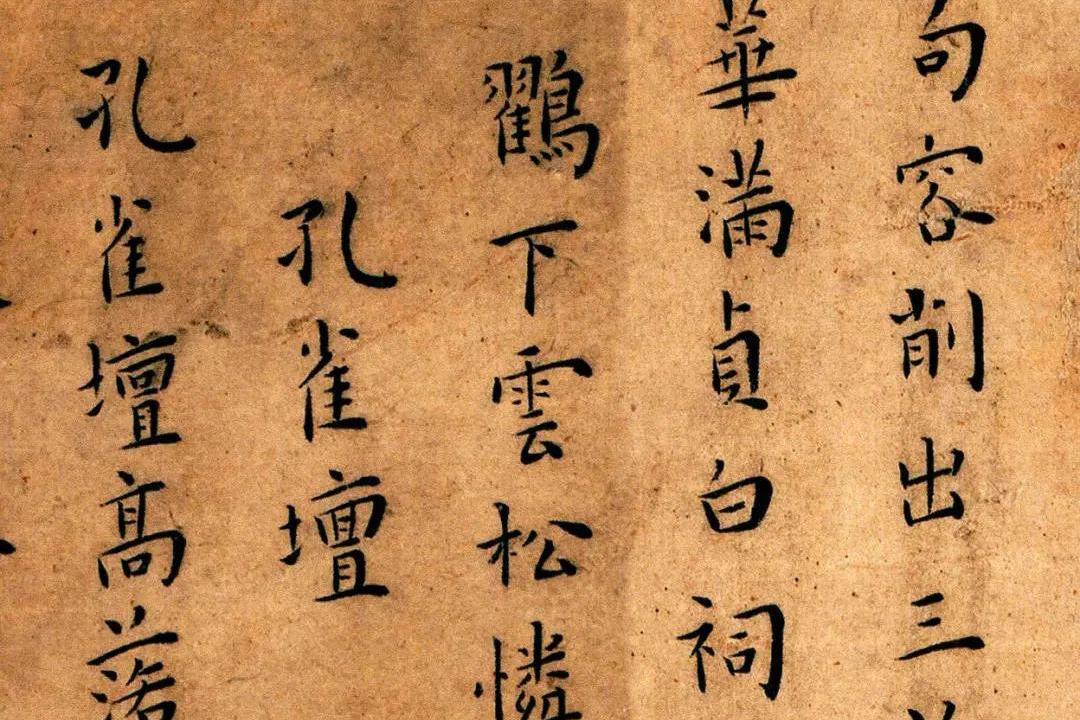 句容削出三
華滿貞白祠
鸛下雲松憐
孔雀壇
孔雀壇高落